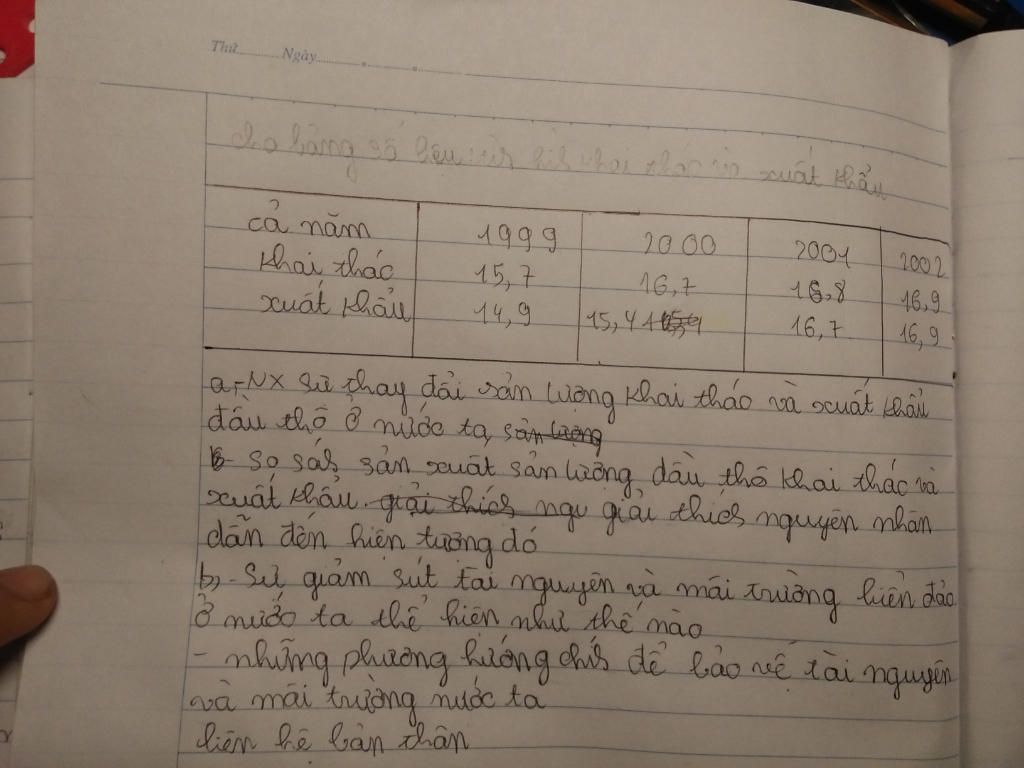 Thứ......... Ngày.........
cho bảng số liệu: tình hình khai thác và xuất khẩu
cả năm 1999 2000 2001 2002
khai thác 15,7 16,7 16,8 16,9
xuất khẩu 14,9 15,4 16,7 16,9
a,-NX sự thay đổi sản lượng khai thác và xuất khẩu
dầu thô ở nước ta, sản lượng
- so sánh sản xuất sản lượng dầu thô khai thác và
xuất khẩu. giải thích ngu giải thích nguyên nhân
dẫn đến hiện tượng đó
b,- Sự giảm sút tài nguyên và môi trường biển đảo
ở nước ta thể hiện như thế nào
- những phương hướng chính để bảo vệ tài nguyên
và môi trường nước ta
liên hệ bản thân